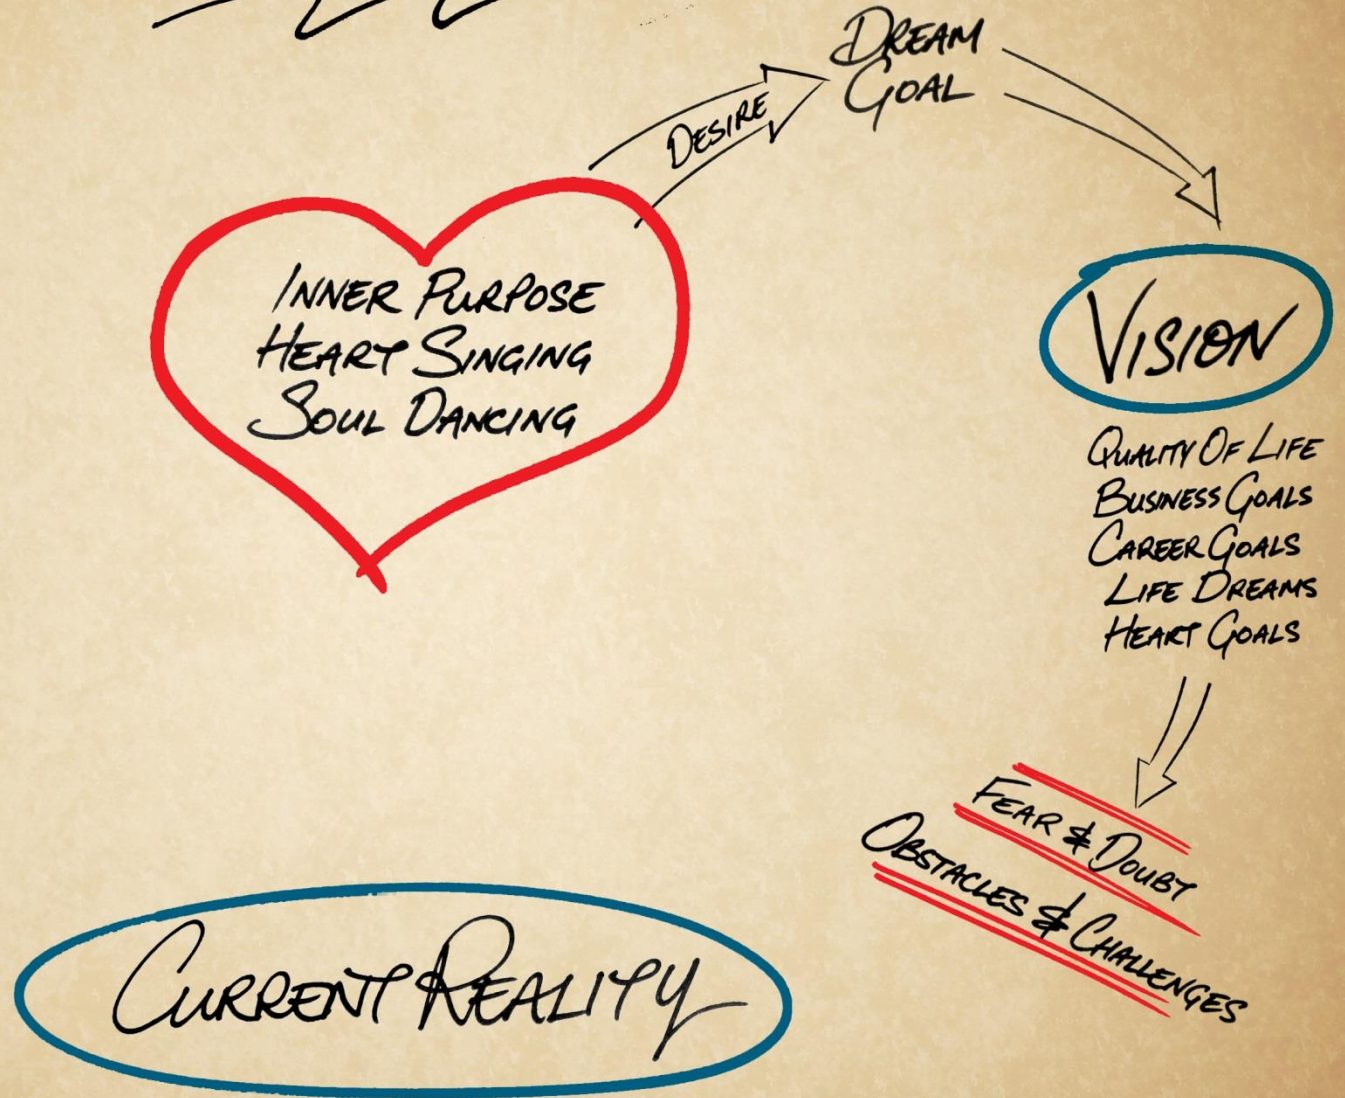 DREAM
GOAL
DESIRE
INNER PURPOSE
HEART SINGING
SOUL DANCING
VISION
QUALITY OF LIFE
BUSINESS GOALS
CAREER GOALS
LIFE DREAMS
HEART GOALS
FEAR & DOUBT
OBSTACLES & CHALLENGES
CURRENT REALITY